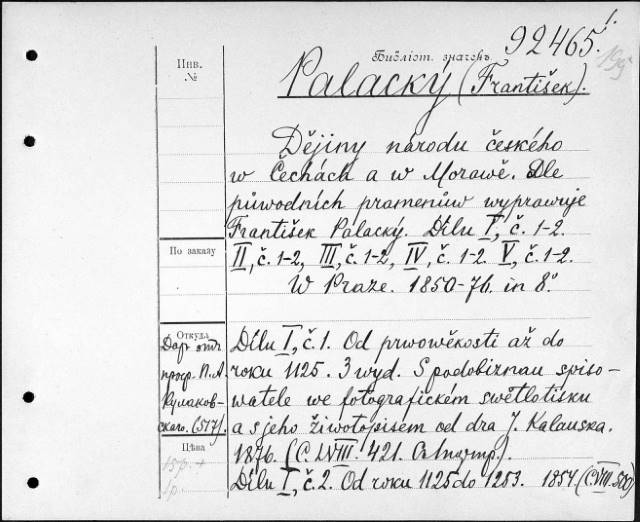 92465.
1.
Библіот. значекъ
Инв.
№
Palacký (František).
Dějiny národu českého
w Čechách a w Morawě. Dle
půwodních pramenůw wyprawuje
František Palacký. Dílu I, č. 1-2.
II, č. 1-2, III, č. 1-2, IV, č. 1-2. V, č. 1-2.
W Praze. 1850-76. in 8°.
По заказу
Откуда
Даръ отъ
проф. П. А.
Кулаков-
скаго. (517).
Цѣна
15р. +
1р.
Dílu I, č. 1. Od prwowěkosti až do
roku 1125. 3 wyd. S podobiznau spiso-
watele we fotografickém swětlotisku
a s jeho žiwotopisem od dra J. Kalauska.
1876. (C. LVIII. 421.
Dílu I, č. 2. Od roku 1125 do 1253. 1854 (C. VIII. 500)